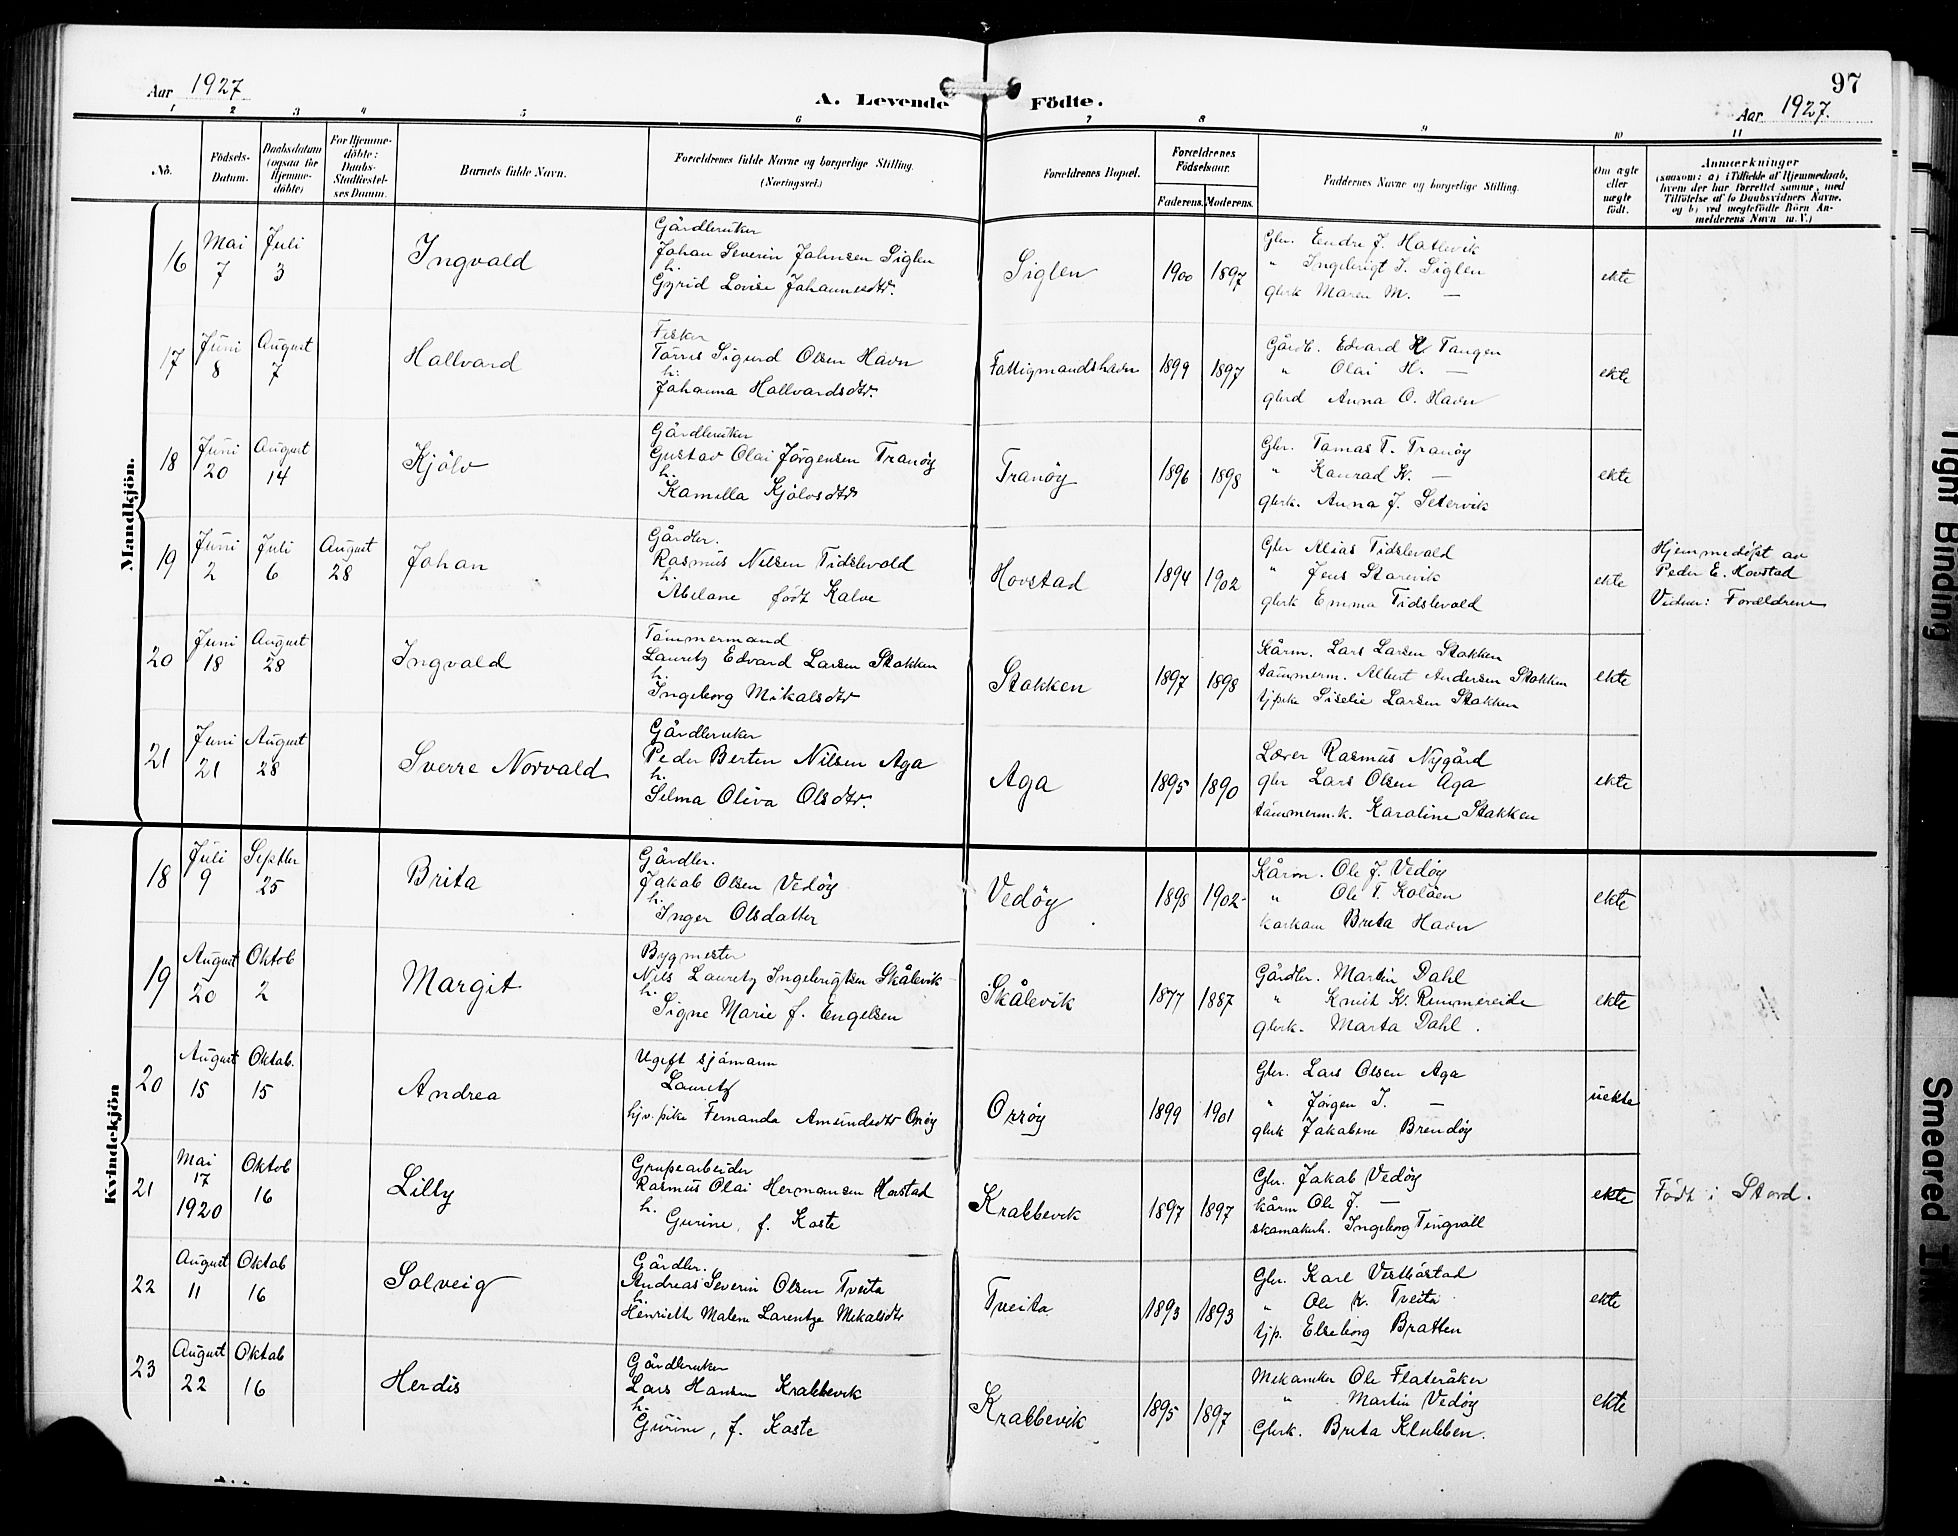 97
Aar 1927
A. Levende Födte.
Aar 1927.
1 2 3 4 5 6 7 8 9 10 11
No.
Födsels-Datum.
Daabsdatum (ogsaa for Hjemme-döbte)
For Hjemme-döbte: Daabs-Stadfæstel-ses Datum.
Barnets fulde Navn.
Forældrenes fulde Navne og borgerlige Stilling.
(Næringsvei.)
Forældrenes Bopæl.
Forældrenes Födselsaar.
Faderens. Moderens.
Faddernes Navne og borgerlige Stilling.
Om ægte eller uægte födt.
Anmærkninger
(saasom: a) i Tilfælde af Hjemmedaab,
hvem der har forrettet samme, med
Tilföielse af to Daabsvidners Navne.
og b) ved uægtefödte Börn An-
melderens Navn m. V.)
Mandkjön.
16 Mai 7 Juli 3 Ingvald
Gårdbruker
Johan Severin Johnsen Siglen
h.
Gyrid Lovise Johannesdtr.
Siglen 1900 1897
Gbr. Endre J. Hatlevik
" Ingebrigt J. Siglen
gbrk Maren M. —
ekte
17 Juni 8 August 7 Hallvard
Fisker
Tørris Sigurd Olsen Havn
h.
Johanna Hallvardsdtr.
Fattigmandshavn 1899 1897
Gårdb. Edvard H. Tangen
" Olai H. —
gbrd Anna O. Havn
ekte
18 Juni 20 August 14 Kjölv
Gårdbruker
Gustav Olai Jørgensen Tranöy
h.
Kamilla Kjölvsdtr
Tranöy 1896 1898
Gbr. Tomas T. Tranöy
" Konrad K. —
gbrk. Anna J. Setervik
ekte
19 Juni 2 Juli 6 August 28 Johan
Gårdbr.
Rasmus Nilsen Tidslevold
h.
Abelone født Kalve
Hovstad 1894 1902
Gbr Alias Tidslevold
" Jens Storevik
gbrk Emma Tidslevold
ekte
Hjemmedøpt av
Peder E. Hovstad
Vidner: Foreldrene
20 Juni 18 August 28 Ingvald
Tömmermand
Lauritz Edvard Larsen Stokken
h.
Ingeborg Mikalsdtr
Stokken 1897 1898
Kårm. Lars Larsen Stokken
tömmerm. Albert Andersen Stokken
tj.pike Siselie Larsen Stokken
ekte
21 Juni 21 August 28 Sverre Norvald
Gårdbruker
Peder Berten Nilsen Aga
h.
Selma Oliva Olsdtr.
Aga 1895 1890
Lærer Rasmus Nygård
gbr Lars Olsen Aga
tömmerm.k. Karoline Stokken
ekte
Kvindekjön
18 Juli 9 Septbr 25 Brita
Gårdbr.
Jakob Olsen Vedöy
h.
Inger Olsdatter
Vedöy 1898 1902
Kårm. Ole J. Vedöy
" Ole T. Kolåen
Brita Havn
ekte
19 August 20 Oktob 2 Margit
Bygmester
Nils Lauritz Ingebrigtsen Skålevik
h.
Signe Marie f. Engelsen
Skålevik 1877 1887
Gårdbr. Martin Dahl
" Knut K. Rimmereide
gbrk. Marta Dahl.
ekte
20 August 15 Oktob. 15 Andrea
Ugift sjömann
Lauritz
hjv. pike Fernanda Amundsdtr Orröy
Orröy 1899 1901
Gbr. Lars Olsen Aga
" Jörgen J. —
gbrk Jakobine Brendöy
uekte
21 Mai 17 1920 Oktob 16 Lilly
Grupearbeider
Rasmus Olai Hermansen Hovstad
h.
Gurine, f. Koste
Krabbevik 1897 1897
Gbr. Jakob Vedöy
kårm Ole J. —
skomakerh. Ingeborg Tingvoll
ekte
Födt i Stord.
22 August 11 Oktob 16 Solveig
Gårdbr.
Andreas Severin Olsen Tveita
h.
Henriette Malene Larentze Mikalsdtr
Tveita 1893 1893
Gbr. Karl Vestböstad
" Ole K. Tveita
tjp. Elseborg Bratten
ekte
23 August 22 Oktob 16 Herdis
Gårdbruker
Lars Hansen Krabbevik
h.
Gurine, f. Koste
Krabbevik 1895 1897
Mekaniker Ole Flateråker
" Martin Vedöy
Gbrk. Brita Klubben.
ekte
Tight Binding
Smeared